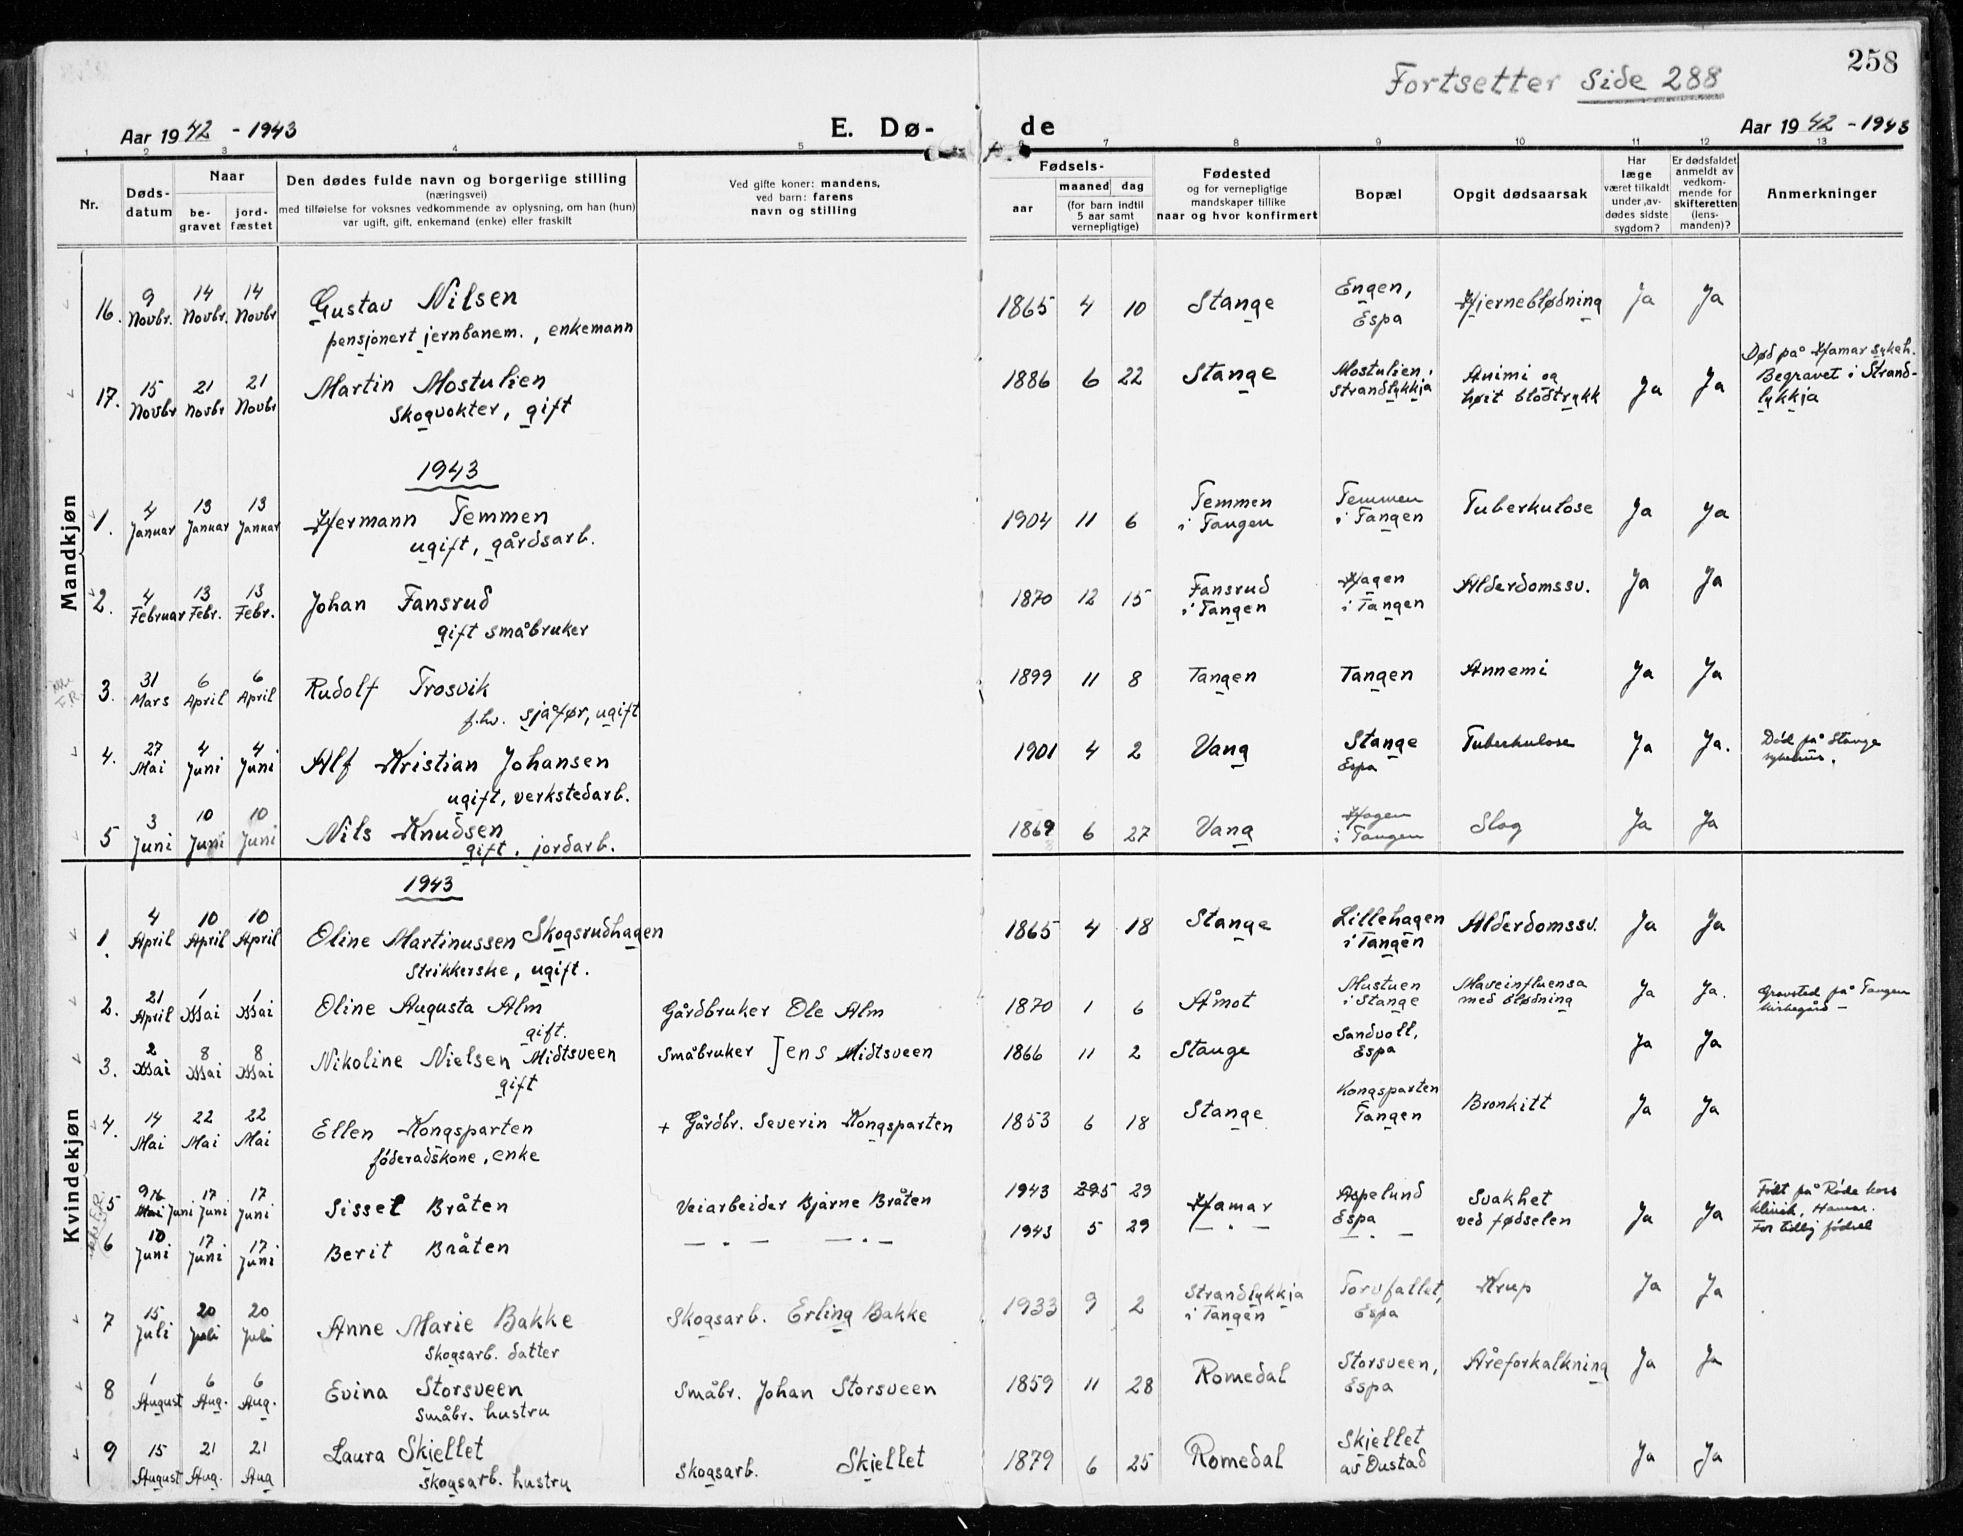 258
Fortsetter Side 288
Aar 1942 - 1943 E. Dø- de Aar 1942 - 1943
1 2 3 4 5 6 7 8 9 10 11 12 13
Nr.
Døds-
datum
Naar
be-
gravet
jord-
fæstet
Den dødes fulde navn og borgerlige stilling
(næringsvei)
med tilføielse for voksnes vedkommende av oplysning, om han (hun)
var ugift, gift, enkemand (enke) eller fraskilt
Ved gifte koner: mandens,
ved barn: farens
navn og stilling
Fødsels-
aar
maaned dag
(for barn indtil
5 aar samt
vernepligtige)
Fødested
og for vernepligtige
mandskaper tillike
naar og hvor konfirmert
Bopæl
Opgit dødsaarsak
Har
læge
været tilkaldt
under ,av-
dødes sidste
sygdom?
Er dødsfaldet
anmeldt av
vedkom-
mende for
skifteretten
(lens-
manden)?
Anmerkninger
Mandkjøn
16. 9 Novbr. 14 Novbr. 14 Novbr Gustav Nilsen
pensjonert jernbanem., enkemann
1865 4 10 Stange Engen, Espa Hjerneblødning Ja Ja
17. 15 Novbr 21 Novbr 21 Novbr Martin Mostulien
Skogvokter, gift
1886 6 22 Stange Mostulien i Strandlykkja Animi og høit blodtrykk Ja Ja Død på Hamar sykeh.
Begravet i Strand-
lykkja
1943
1. 4 Januar 13 Januar 13 Januar Hermann Temmen
ugift, gårdsarb.
1904 11 6 Temmen i Tangen Temmen i Tangen Tuberkulose Ja Ja
2. 4 Februar 13 Febr. 13 Febr. Johan Fansrud
gift småbruker
1870 12 15 Fansrud i Tangen Hagen i Tangen Alderdomssv. Ja Ja
3. 31 Mars 6 April 6 April Rudolf Trosvik
f.hv. sjåfør, ugift
1899 11 8 Tangen Tangen Annemi Ja Ja
4. 27 Mai 4 Juni 4 Juni Alf Kristian Johansen
ugift, verkstedarb.
1901 4 2 Vang Stange Espa Tuberkulose Ja Ja. Død på Stange
sykehus.
5 3 Juni 10 Juni 10 Juni Nils Knudsen
gift. jordarb.
1869 6 27 Vang Hagen i Tangen Slag Ja Ja
Kvindekjøn
1943
1. 4 April 10 April 10 April Oline Martinussen Skogsrudhagen
Strikkerske, ugift.
1865 4 18 Stange Lillehagen i Tangen Alderdomssv. Ja Ja
2. 21 April 1 Mai 1 Mai Oline Augusta Alm
gift.
Gårdbruker Ole Alm 1870 1 6 Åmot Mustuen i Stange Maveinfluensa med blødning Ja Ja. Gravsted på Tangen
kirkegård -
3. 2 Mai 8 Mai 8 Mai Nikoline Nielsen Midtsveen
gift
Småbruker Jens Midtsveen 1866 11 2 Stange Sandvoll, Espa Ja Ja
4. 14 Mai 22 Mai 22 Mai Ellen Kongsparten
föderadskone, enke
+ Gårdbr. Severin Kongsparten 1853 6 18 Stange Kongsparten Tangen Bronkitt Ja Ja
5 Juni 17 Juni 17 Juni Sissel Bråten Veiarbeider Bjarne Bråten 1943 5 29 Hamar Aspelund Espa Svakhet ved fødselen Ja Ja Født på Røde kors
klinik, Hamar.
For tidlig fødsel
6 10 Juni 17 Juni 17 Juni Berit Bråten — . — — . — 1943 5 29 — . — — . —
7 15 Juli 20 Juli 20 Juli Anne Marie Bakke
Skogsarb. datter
Skogsarb. Erling Bakke 1933 9 2 Strandlykkja i Tangen Torvfallet, Espa Krup Ja Ja
8 1 August 6 Aug. 6 Aug. Evina Storsveen
Småbr. hustru
Småbr. Johan Storsveen 1859 11 28 Romedal Storsveen, Espa Åreforkalkning Ja Ja
9 15 August 21 Aug. 21 Aug Laura Skjellet
Skogsarb. hustru
Skogsarb. Skjellet 1879 6 25 Romedal Skjellet av Dustad Ja Ja